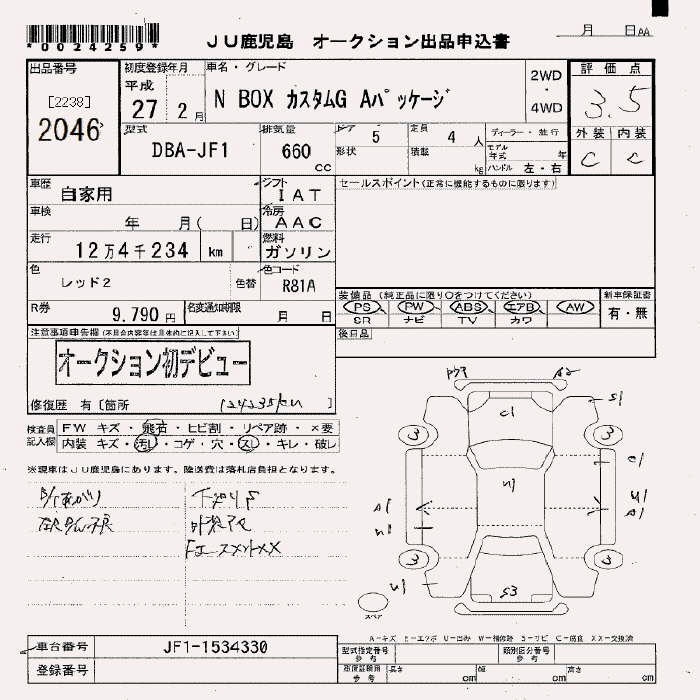 *0024259*
JU鹿児島 オークション出品申込書
月 日AA
出品番号
[2238]
2046
初度登録年月
平成
27 2月
車名・グレード
N BOX カスタムG Aパッケージ
2WD
・
4WD
評価点
3.5
外装 内装
C C
型式
DBA-JF1
排気量
660
cc
ドア 5
形状
定員 4 人
積載 kg
ディーラー・並行
モデル年式 年
ハンドル 左・右
車歴
自家用
シフト
IAT
セールスポイント(正常に機能するものに限ります)
車検
年 月( 日)
冷房
AAC
走行
12万4千234 km
燃料
ガソリン
色
レッド2
色替
色コード
R81A
R券
9,790 円
名変通知期限
月 日
装備品(純正品に限り○をつけてください)
新車保証書
PS PW ABS エアB AW
SR ナビ TV カワ
有・無
後日品
注意事項申告欄(不具合内容等は具体的に記入して下さい)
オークション初デビュー
修復歴 有[箇所 ]
124235km
検査員記入欄
FW キズ・飛石・ヒビ割・リペア跡・×要
内装 キズ・汚レ・コゲ・穴・スレ・キレ・破レ
※現車はJU鹿児島にあります。陸送費は落札店負担となります。
A2
C1
S1
3 3
C1
U1
A1
U1
U1
A1
3 3
U1
S3
スペア
A-キズ E-エクボ U-凹み W-補修跡 S-サビ C-腐食 XX-交換済
車台番号
JF1-1534330
登録番号
型式指定番号
参考
類別区分番号
参考
長さ cm
幅 cm
高さ cm